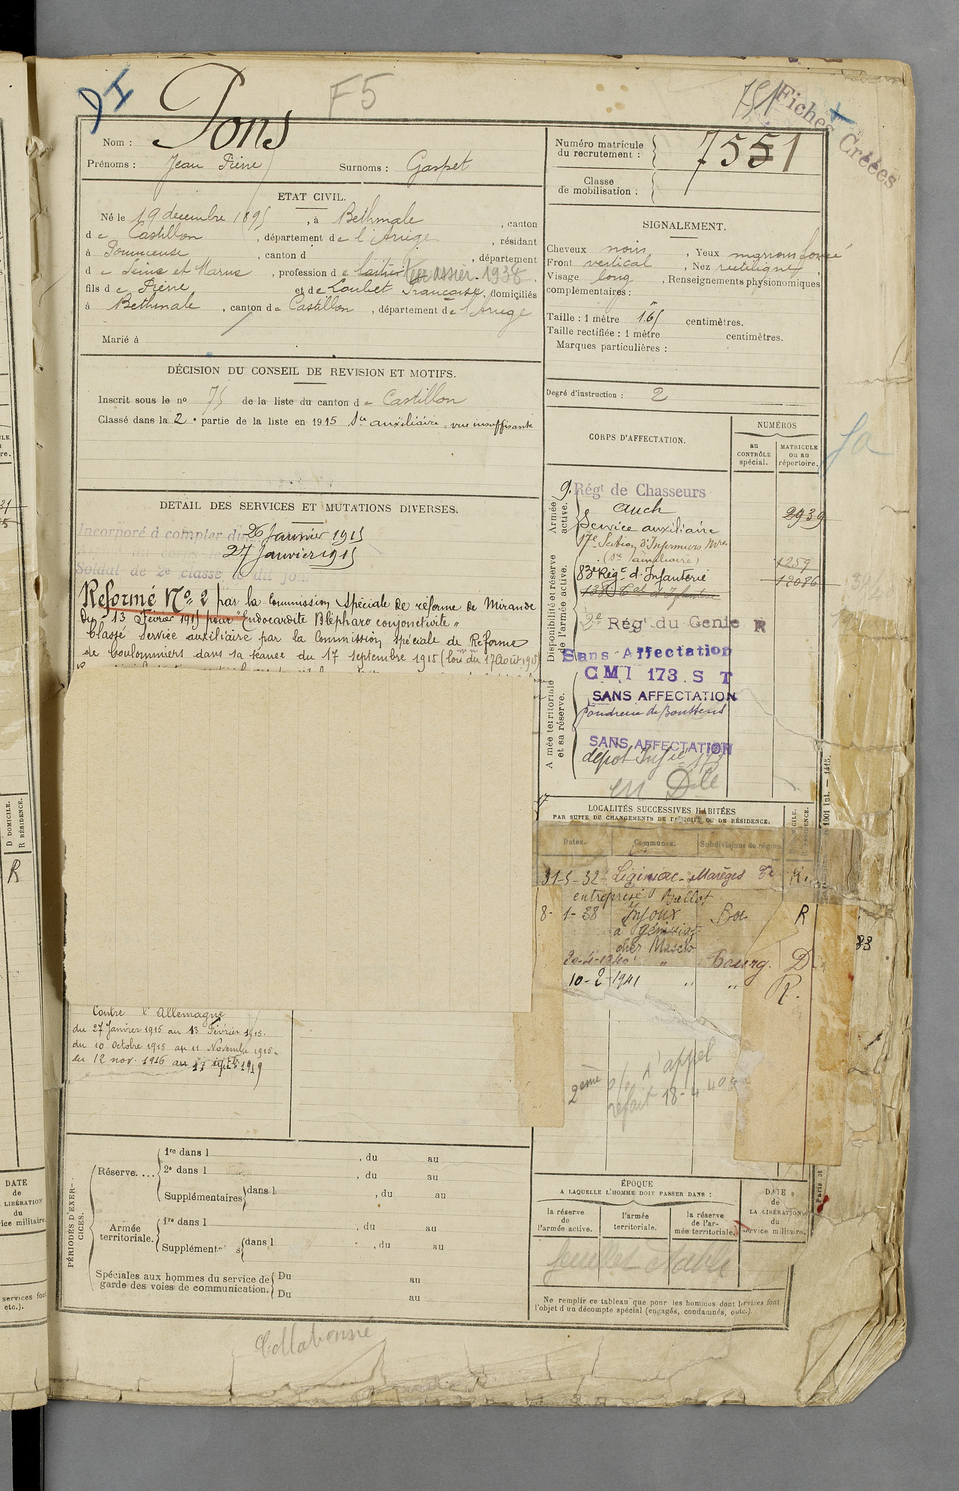 F5
751
Fiches Créées
Nom : Pons
Prénoms : Jean Pierre Surnoms : Gaspet
Numéro matricule du recrutement : 7551
Classe de mobilisation :
ETAT CIVIL.
Né le 19 décembre 1895, à Bethmale, canton
de Castillon, département de l'Ariège, résidant
à Pommeuse, canton d , département
d e Seine et Marne, profession de laitier Terrassier-1938
fils de Pierre et de Loubet Française, domiciliés
à Bethmale, canton de Castillon, département de l'Ariège
Marié à
SIGNALEMENT.
Cheveux noirs, Yeux marron foncé
Front vertical, Nez rectiligne
Visage long, Renseignements physionomiques
complémentaires :
Taille : 1 mètre 65 centimètres.
Taille rectifiée : 1 mètre centimètres.
Marques particulières :
Degré d'instruction : 2
DÉCISION DU CONSEIL DE REVISION ET MOTIFS.
Inscrit sous le no 75 de la liste du canton de Castillon
Classé dans la 2e partie de la liste en 1915 Sce auxiliaire, vue insuffisante
DETAIL DES SERVICES ET MUTATIONS DIVERSES.
Incorporé à compter du 26 Janvier 1915
27 Janvier 1915
Soldat de 2e classe le dit jour
Reforme No 2 par la Commission Spéciale de réforme de Mirande
du 13 Février 1915 pour "Endocardite Blépharo conjonctivite"
Classé Service auxiliaire par la Commission spéciale de Réforme
de Coulommiers dans sa séance du 17 septembre 1915 (loi du 17 Août 1915)
Contre l'Allemagne
du 27 Janvier 1915 au 13 Février 1915.
du 10 Octobre 1915 au 11 Novembre 1915.
du 12 nov. 1916 au 17 septbre 1919
CORPS D'AFFECTATION.
NUMÉROS
au CONTRÔLE spécial.
MATRICULE ou au répertoire.
Armée active.
9e Régt de Chasseurs
Auch 2939
Service auxiliaire
17e Section d'Infirmiers Mres
(Sce auxiliaire) 1259
Disponibilité et réserve de l'armée active.
83e Régt d'Infanterie 12086
2e Régt du Génie R
Sans Affectation
CMI 173. S T
Armée territoriale et sa réserve.
SANS AFFECTATION
Poudrerie de Boussens
SANS AFFECTATION
dépot Infie 173
en Dle
LOCALITÉS SUCCESSIVES HABITÉES
PAR SUITE DE CHANGEMENTS DE DOMICILE OU DE RÉSIDENCE.
Dates. Communes. Subdivisions de région.
31-5-32 Liginiac-Marèges R
entreprise Ballot
8-1-38 Injoux R
à Génissiat
chez Mascio
20-4-1940 " Bourg. D
10-2-1941 " " R.
2ème
l'appel
refait 18-4-40
PÉRIODES D'EXERCICES.
Réserve....
1re dans l , du au
2e dans l , du au
Supplémentaires dans l , du au
Armée territoriale.
1re dans l , du au
Supplément s dans l , du au
Spéciales aux hommes du service de garde des voies de communication.
Du au
Du au
ÉPOQUE
A LAQUELLE L'HOMME DOIT PASSER DANS :
la réserve de l'armée active.
l'armée territoriale.
la réserve de l'armée territoriale.
DATE de LA LIBÉRATION du service militaire.
feuillet établi
Ne remplir ce tableau que pour les hommes dont les services font
l'objet d'un décompte spécial (engagés, condamnés, etc.).
Collationné